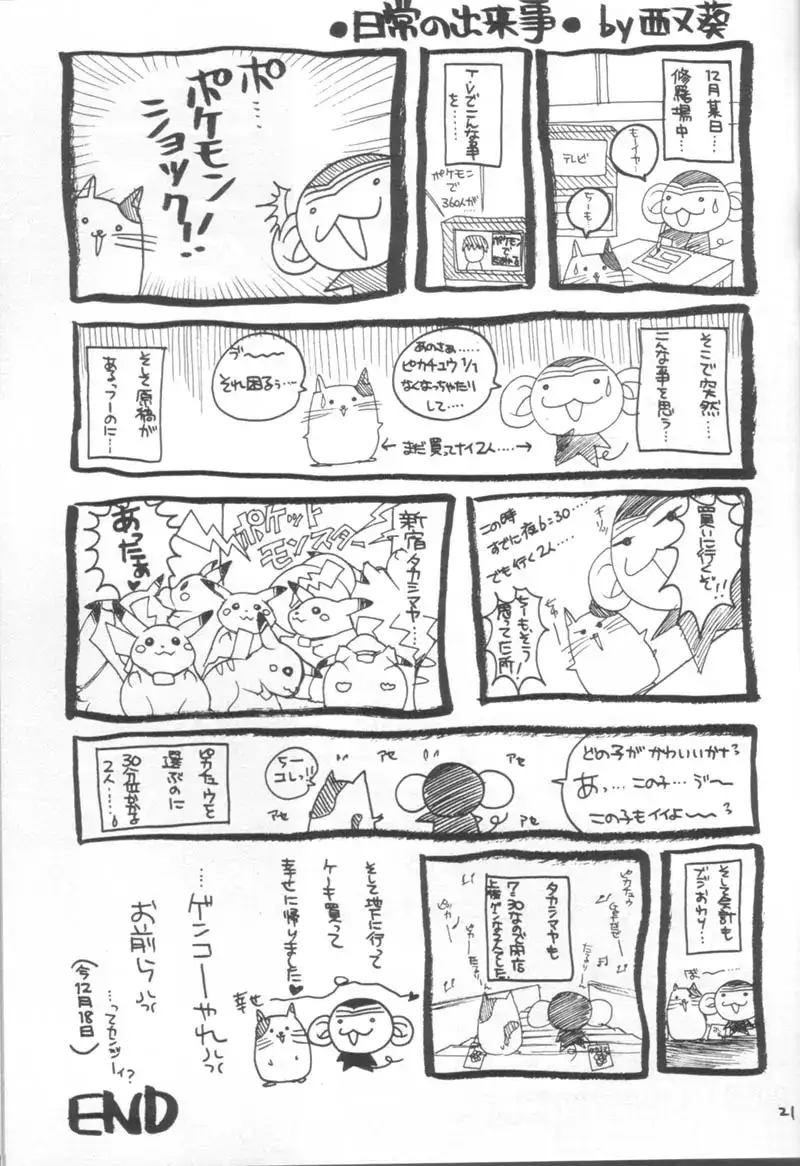 ●日常の出来事● by 西又葵
12月某日…
修羅場中…
もーイヤ…
テレビ
ちーも
T.Vでこんな事
を………
ポケモンで
360人が…
ポケモン
で
ポ…
ポケモン
ショック!!
そこで突然…
こんな事を思う…
あのさぁ……
ピカチュウ1/1
なくなっちゃたり
して……
← まだ買ってナイ2人…… →
ヴ〜〜
それ困るぅ…
そして原稿が
あるっつーのに…
買いに行くぞ!!
キリッ
この時
すでに夜6:30…
でも行く2人…
ちーもそう
思ってた所!
新宿タカシマヤ……
ポケット
モンスター
あったぁ♥
どの子がかわいいかな?
あっ…この子…ヴ〜
この子もイイよ〜〜?
アセ
アセ
アセ
アセ
ちー
コレっ!!
ピカチュウを
選ぶのに
30分位かかる
2人……。
そして会計も
でうおわり…
ば〜……
タカシマヤも
7:30なので閉店
そして地下に行って
ケーキ買って
幸せに帰りました♥
幸せ
…ゲンコーやれっっ
お前らっっ
(今12月18日)
END
21